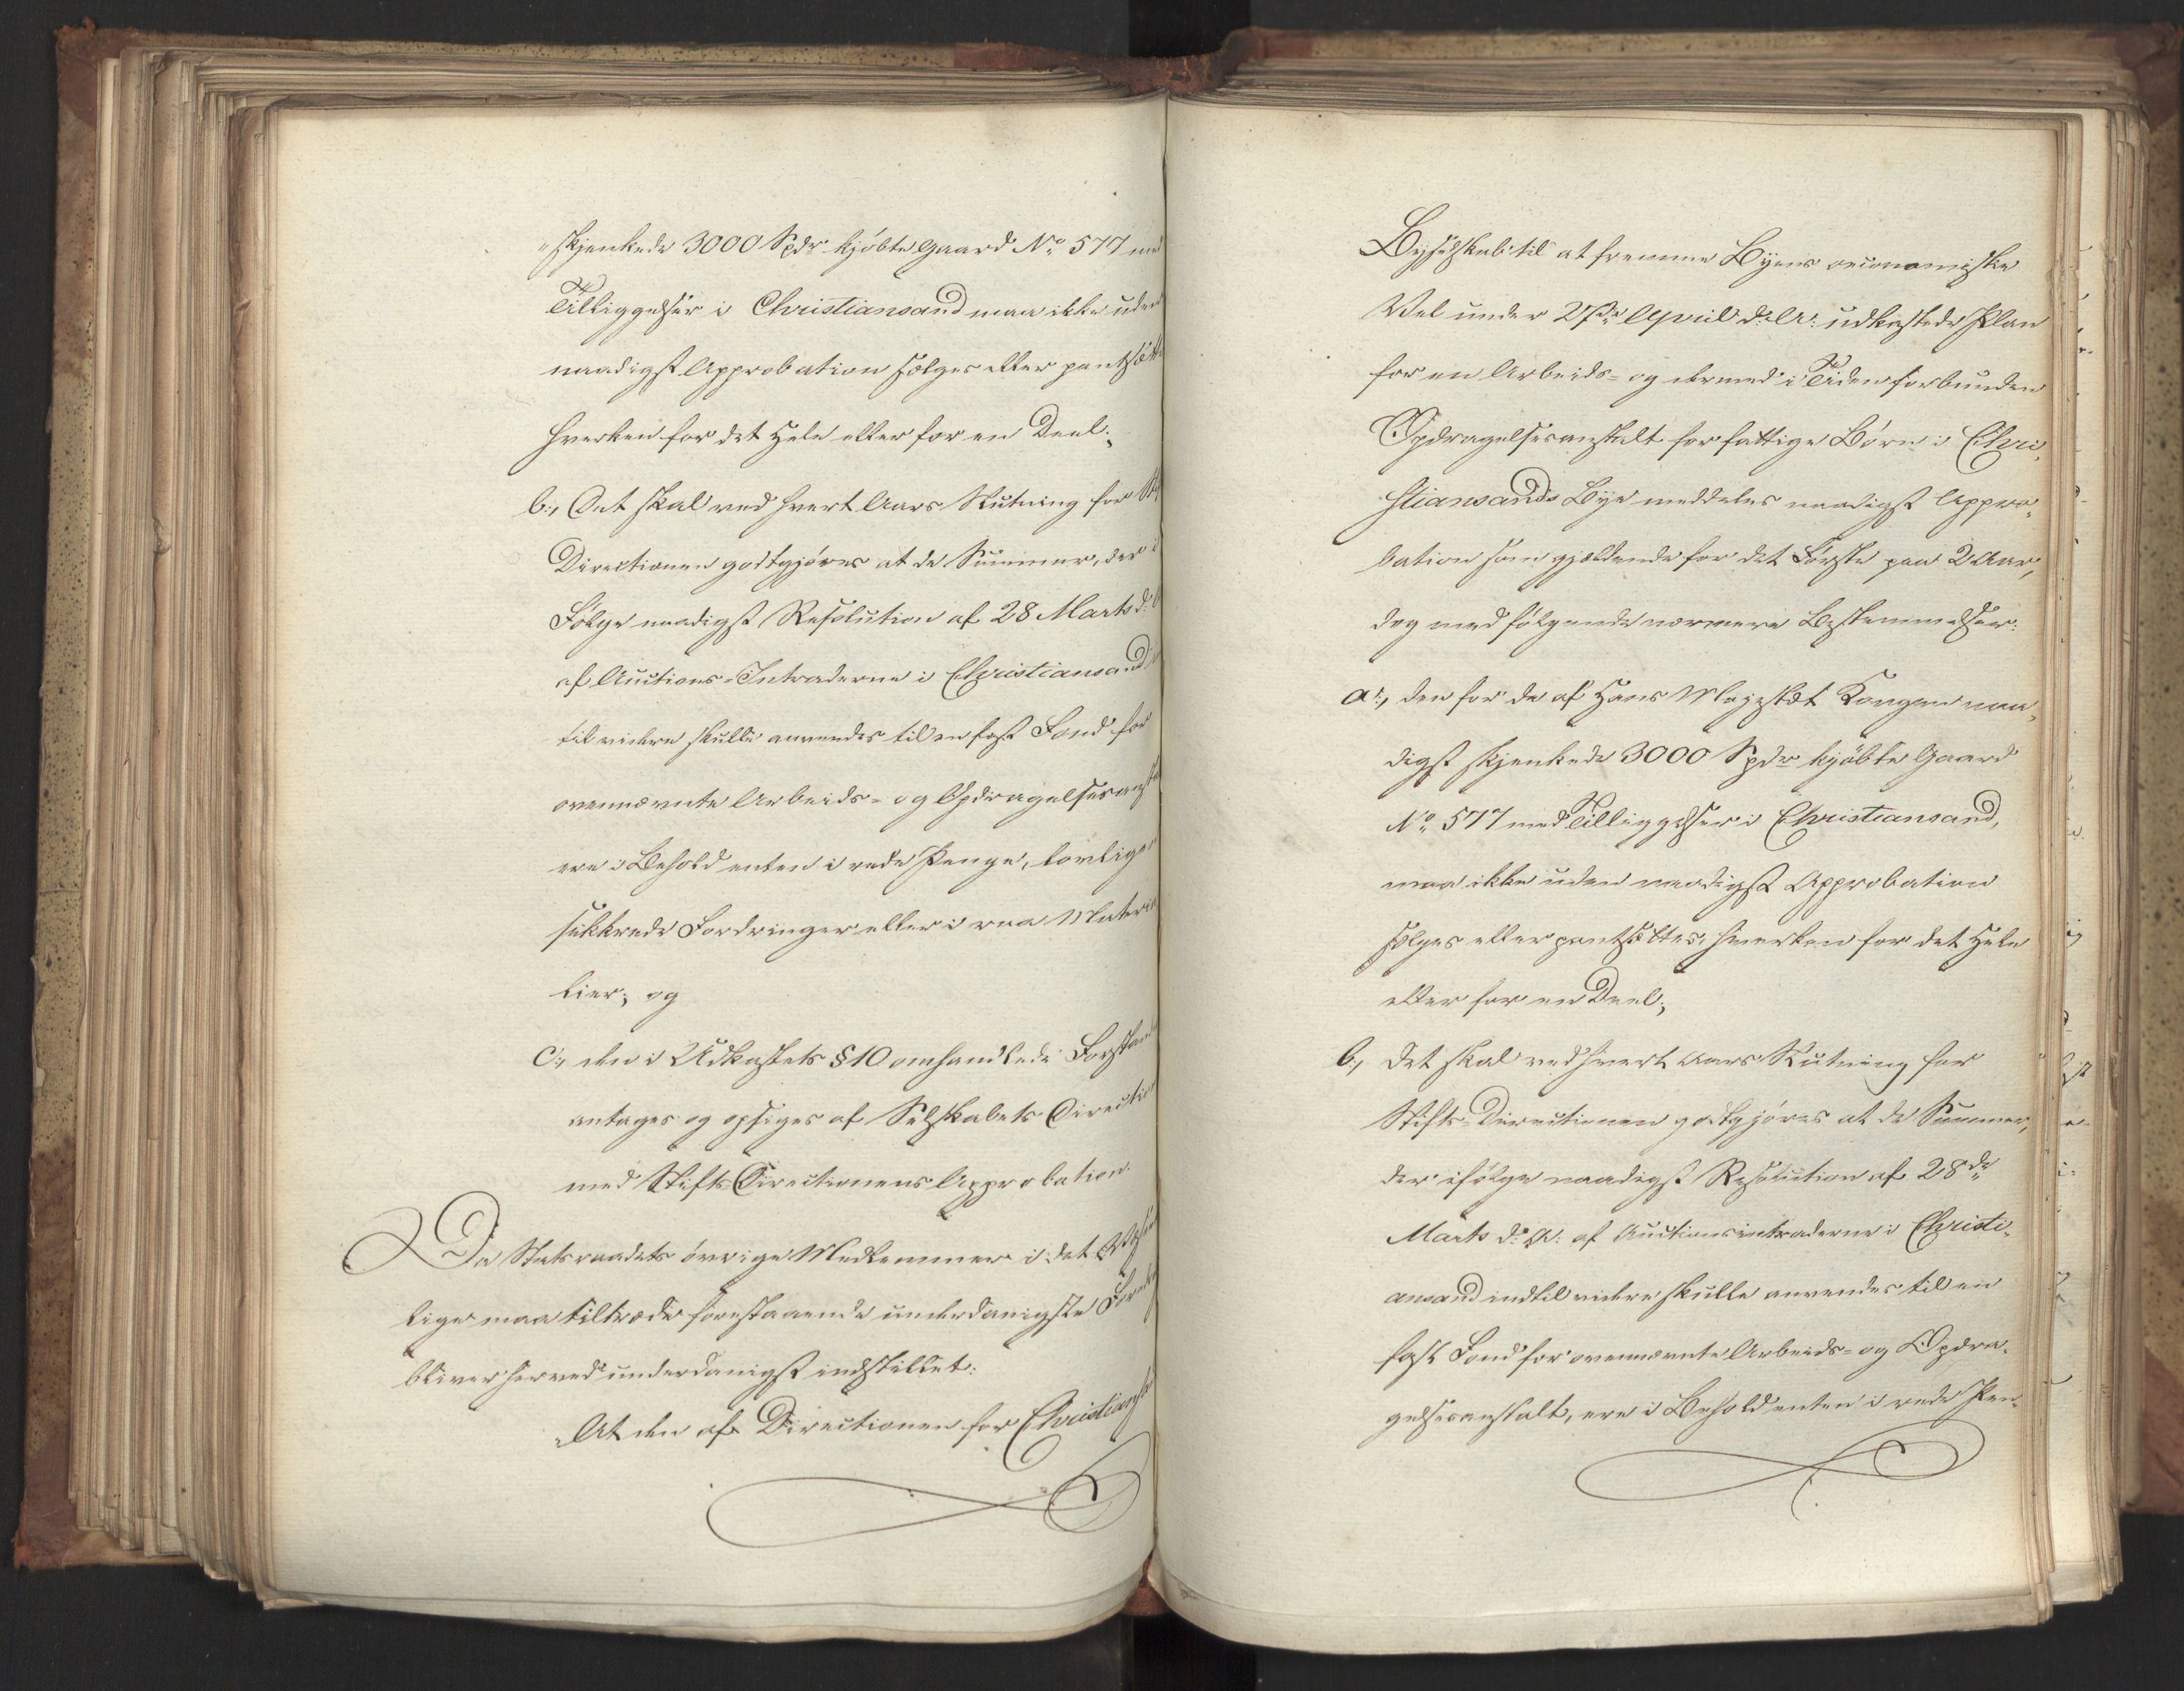 "skjenkede 3000 Spdr kjöbte Gaard No 577 med
Tilliggelser i Christiansand maa ikke uden
naadigst Approbation sælges eller pantsætte
hverken for det Hele eller for en Deel;
b., Det skal ved hvert Aars Slutning for
Directionen godtgjöres at de Summer, der i
Fölge naadigst Resolution af 28 Marts d:
af Auctions-Intraderne i Christiansand
til videre skulle anvendes til en fast Fond for
ovennævnte Arbeids- og Opdragelsesanst
ere i Behold enten i rede Penge, lovligen
sikkrede Fordringer eller i raa Materia
lier; og
c., den i Udkastets § 10 omhandlede Forstand
antages og opsiges af Selskabets Direction
med Stifts-Directionens Approbation.
Da Statsraadets övrige Medlemmer i det Væsent
lige maa tiltræde forestaaende underdanigste
bliver herved underdanigst indstillet:
"At den af Directionen for Christians
Byselskab til at fremme Byens oeconomiske
Vel under 27de April d: A: udkastede Plan
for en Arbeids- og dermed i Tiden forbunden
Opdragelsesanstalt for fattige Börn i Chri-
stiansands Bye meddeles naadigst Appro-
bation som gjældende for det Förste paa 2 Aar,
dog med fölgende nærmere Bestemmelser:
a., den for de af Hans Majestæt Kongen naa-
digst skjenkede 3000 Spdr kjöbte Gaard
No 577 med Tilliggelser i Christiansand,
maa ikke uden naadigst Approbation
sælges eller pantsættes, hverken for det Hele
eller for en Deel;
b., det skal ved hvert Aars Slutning for
Stifts-Directionen godtgjöres at de Summer,
der ifölge naadigst Resolution af 28de
Marts d: A: af Auctionsintraderne i Christi-
ansand indtil videre skulle anvendes til en
fast Fond for ovennævnte Arbeids- og Opdra-
gelsesanstalt, ere i Behold enten i rede Pen-